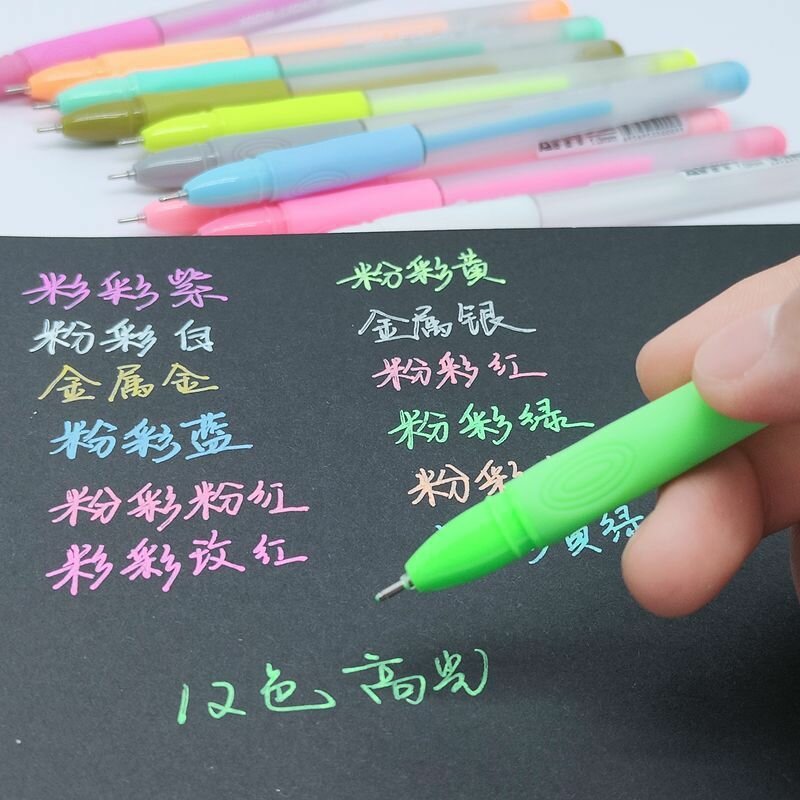 粉彩紫
粉彩白
金属金
粉彩蓝
粉彩粉红
粉彩玫红
粉彩黄
金属银
粉彩红
粉彩绿
粉彩
黄绿
12色高光